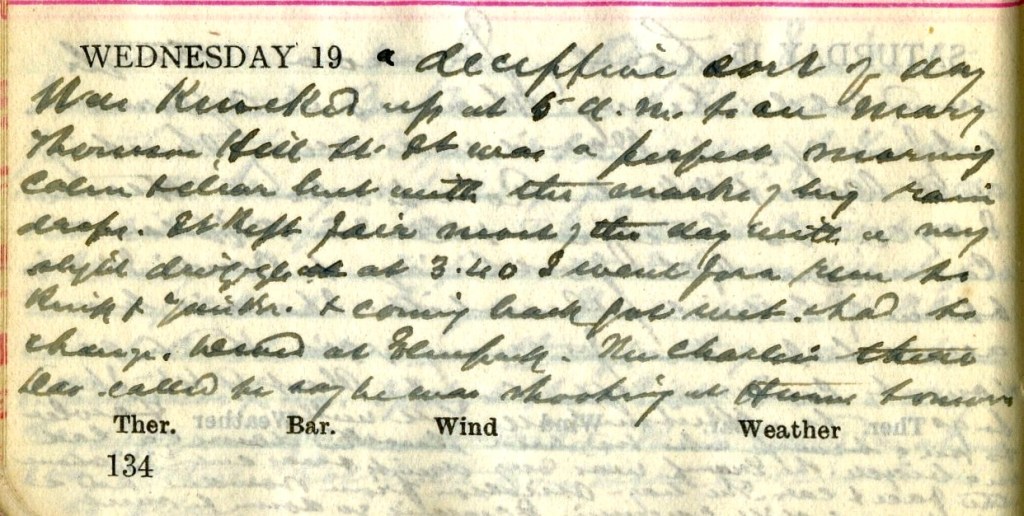 WEDNESDAY 19 a deceptive sort of day
Was Knocked up at 5 a.m. to see Mary
Thomson Hill St. It was a perfect morning
calm & clear but with the marks of big rain
drops. It Kept fair most of the day with a very
slight drizzle at 3.40 I went for a run to
& Yair Br. & coming back got wet. & had to
change. at Elmpark. Mr Charlie there
was called to say he was shooting at Hume
Ther. Bar. Wind Weather
134